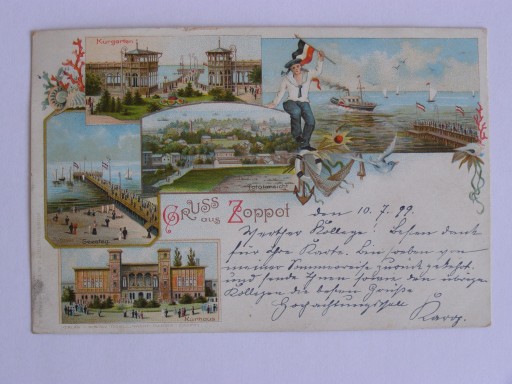 Kurgarten
Totalansicht
Seesteg
Gruss
aus Zoppot
Kurhaus
den 10. 7. 99.
Werther Kollege! Besten Dank
für Ihre Karte. Bin soeben von
meiner Sommerreise zurück gekehrt
und sende Ihnen sowie den übrigen
Kollegen die besten Grüße
Hochachtungsvoll